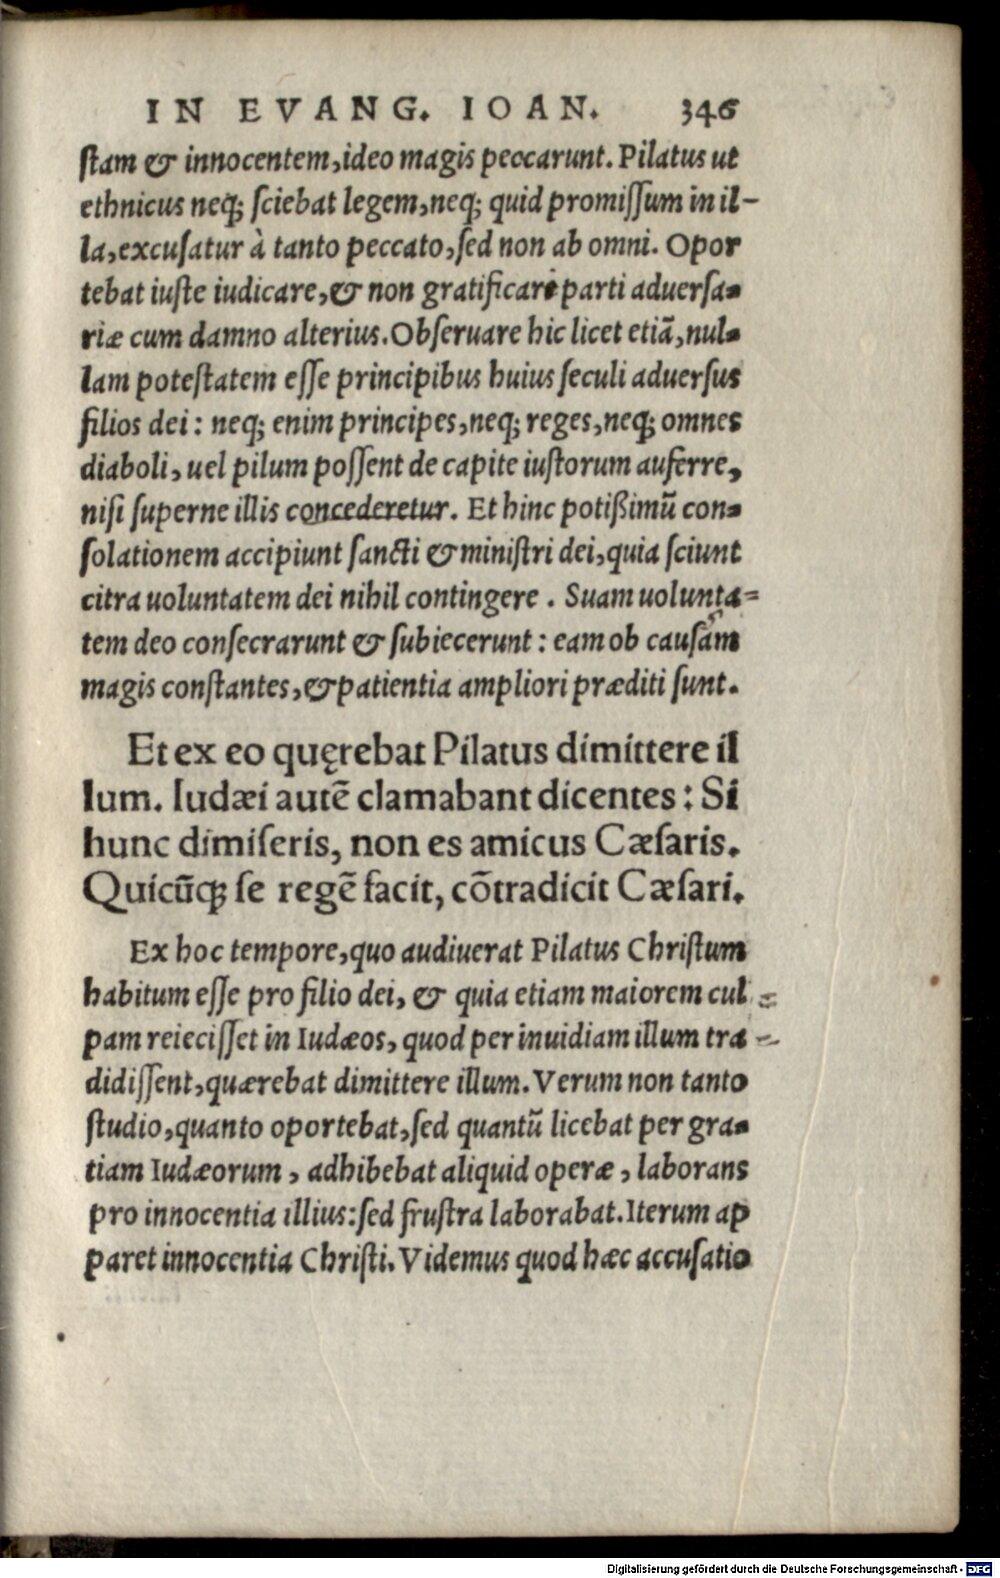 IN EVANG. IOAN. 346
ſtam & innocentem, ideo magis peccarunt. Pilatus ut
ethnicus neq; ſciebat legem, neq; quid promiſſum in il-
la, excuſatur à tanto peccato, ſed non ab omni. Opor
tebat iuſte iudicare, & non gratificari parti aduerſa-
riæ cum damno alterius. Obſeruare hic licet etiã, nul-
lam poteſtatem eſſe principibus huius ſeculi aduerſus
filios dei: neq; enim principes, neq; reges, neq; omnes
diaboli, uel pilum poſſent de capite iuſtorum auferre,
niſi ſuperne illis concederetur. Et hinc potißimũ con-
ſolationem accipiunt ſancti & miniſtri dei, quia ſciunt
citra uoluntatem dei nihil contingere. Suam uolunta=
tem deo conſecrarunt & ſubiecerunt: eam ob cauſam
magis conſtantes, & patientia ampliori præditi ſunt.
Et ex eo quęrebat Pilatus dimittere il
lum. Iudæi autẽ clamabant dicentes: Si
hunc dimiſeris, non es amicus Cæſaris.
Quicũq; ſe regẽ facit, cõtradicit Cæſari.
Ex hoc tempore, quo audiuerat Pilatus Chriſtum
habitum eſſe pro filio dei, & quia etiam maiorem cul =
pam reieciſſet in Iudæos, quod per inuidiam illum tra =
didiſſent, quærebat dimittere illum. Verum non tanto
ſtudio, quanto oportebat, ſed quantũ licebat per gra-
tiam Iudæorum, adhibebat aliquid operæ, laborans
pro innocentia illius: ſed fruſtra laborabat. Iterum ap
paret innocentia Chriſti. Videmus quod hæc accuſatio
Digitalisierung gefördert durch die Deutsche Forschungsgemeinschaft - DFG